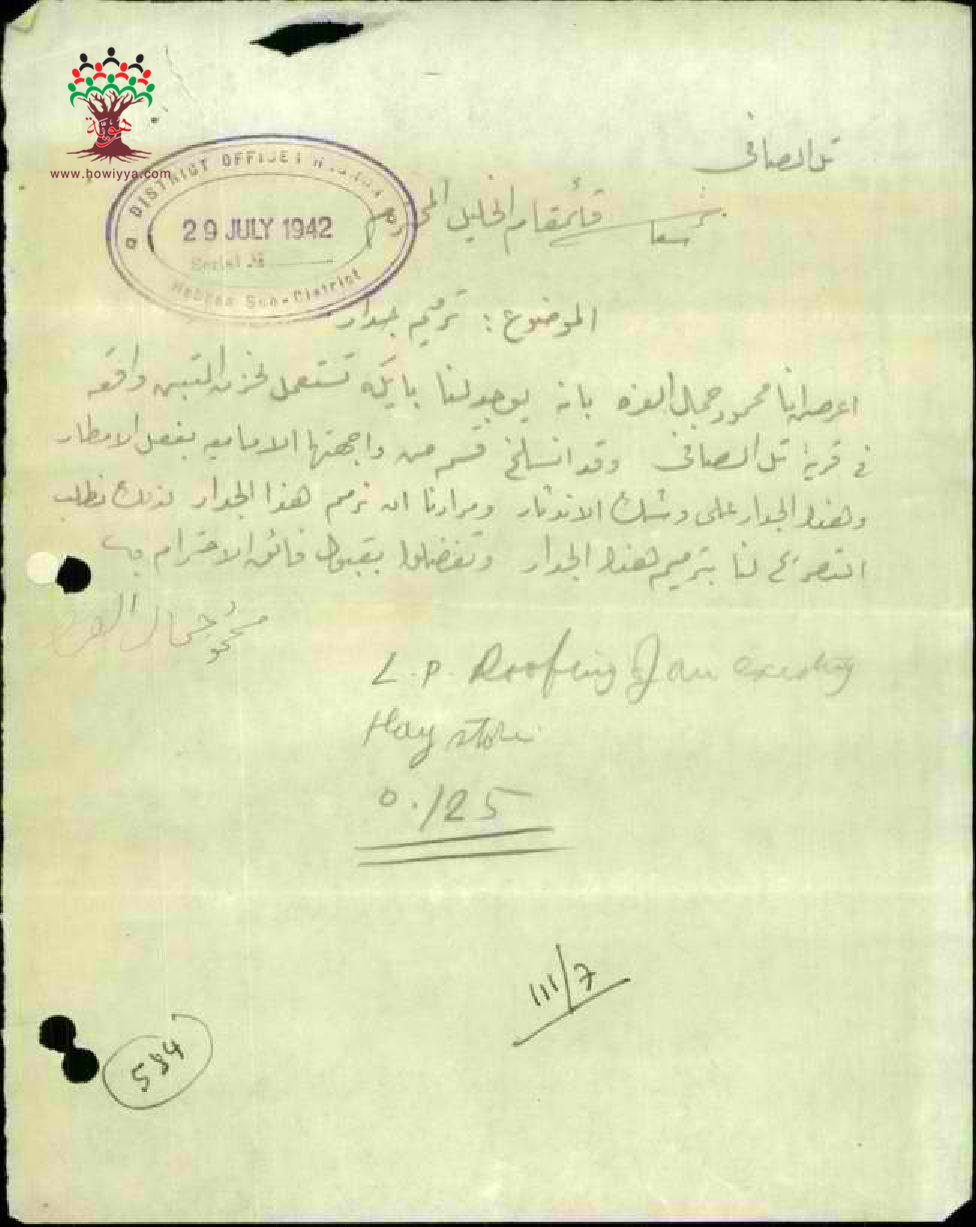 هوية
www.howiyya.com
تل الصافي
DISTRICT OFFICER
29 JULY 1942
Serial №
Hebron Sub-District
قائمقام الخليل المحترم
الموضوع : ترميم جدار
اعرض انا محمود جمال العزه بانه يوجد لنا بايكه تستعمل لخزن التبن واقعه
في قرية تل الصافي وقد انسلخ قسم من واجهتها الاماميه بفعل الامطار
وهذا الجدار على وشك الاندثار ومرادنا ان نرمم هذا الجدار لذلك نطلب
التصريح لنا بترميم هذا الجدار وتفضلوا بقبول فائق الاحترام
محمود جمال العزه
L.P. Roofing of an existing
Hay store
0./25
111/7
594